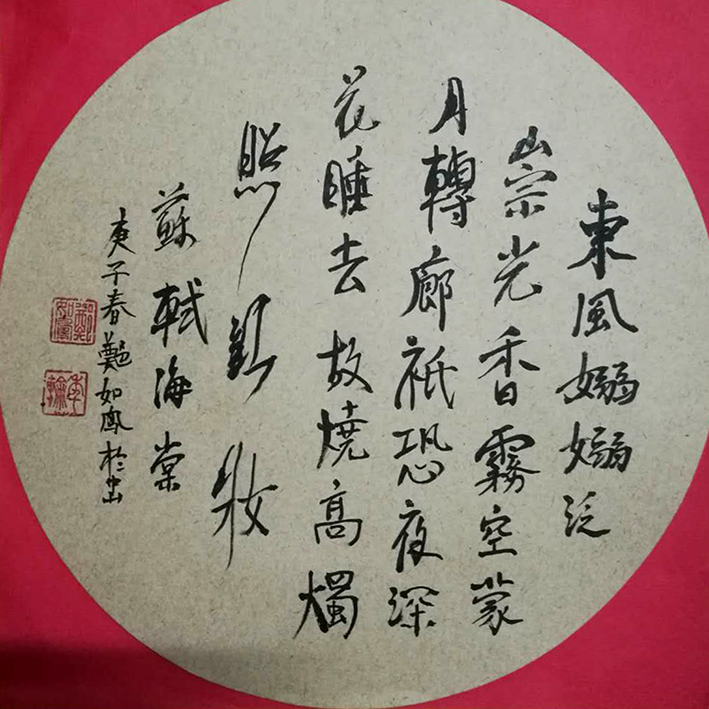 東風嫋嫋泛
崇光香霧空蒙
月轉廊祇恐夜深
花睡去故燒高燭
照紅妝
蘇軾海棠
庚子春鄭如鳳於